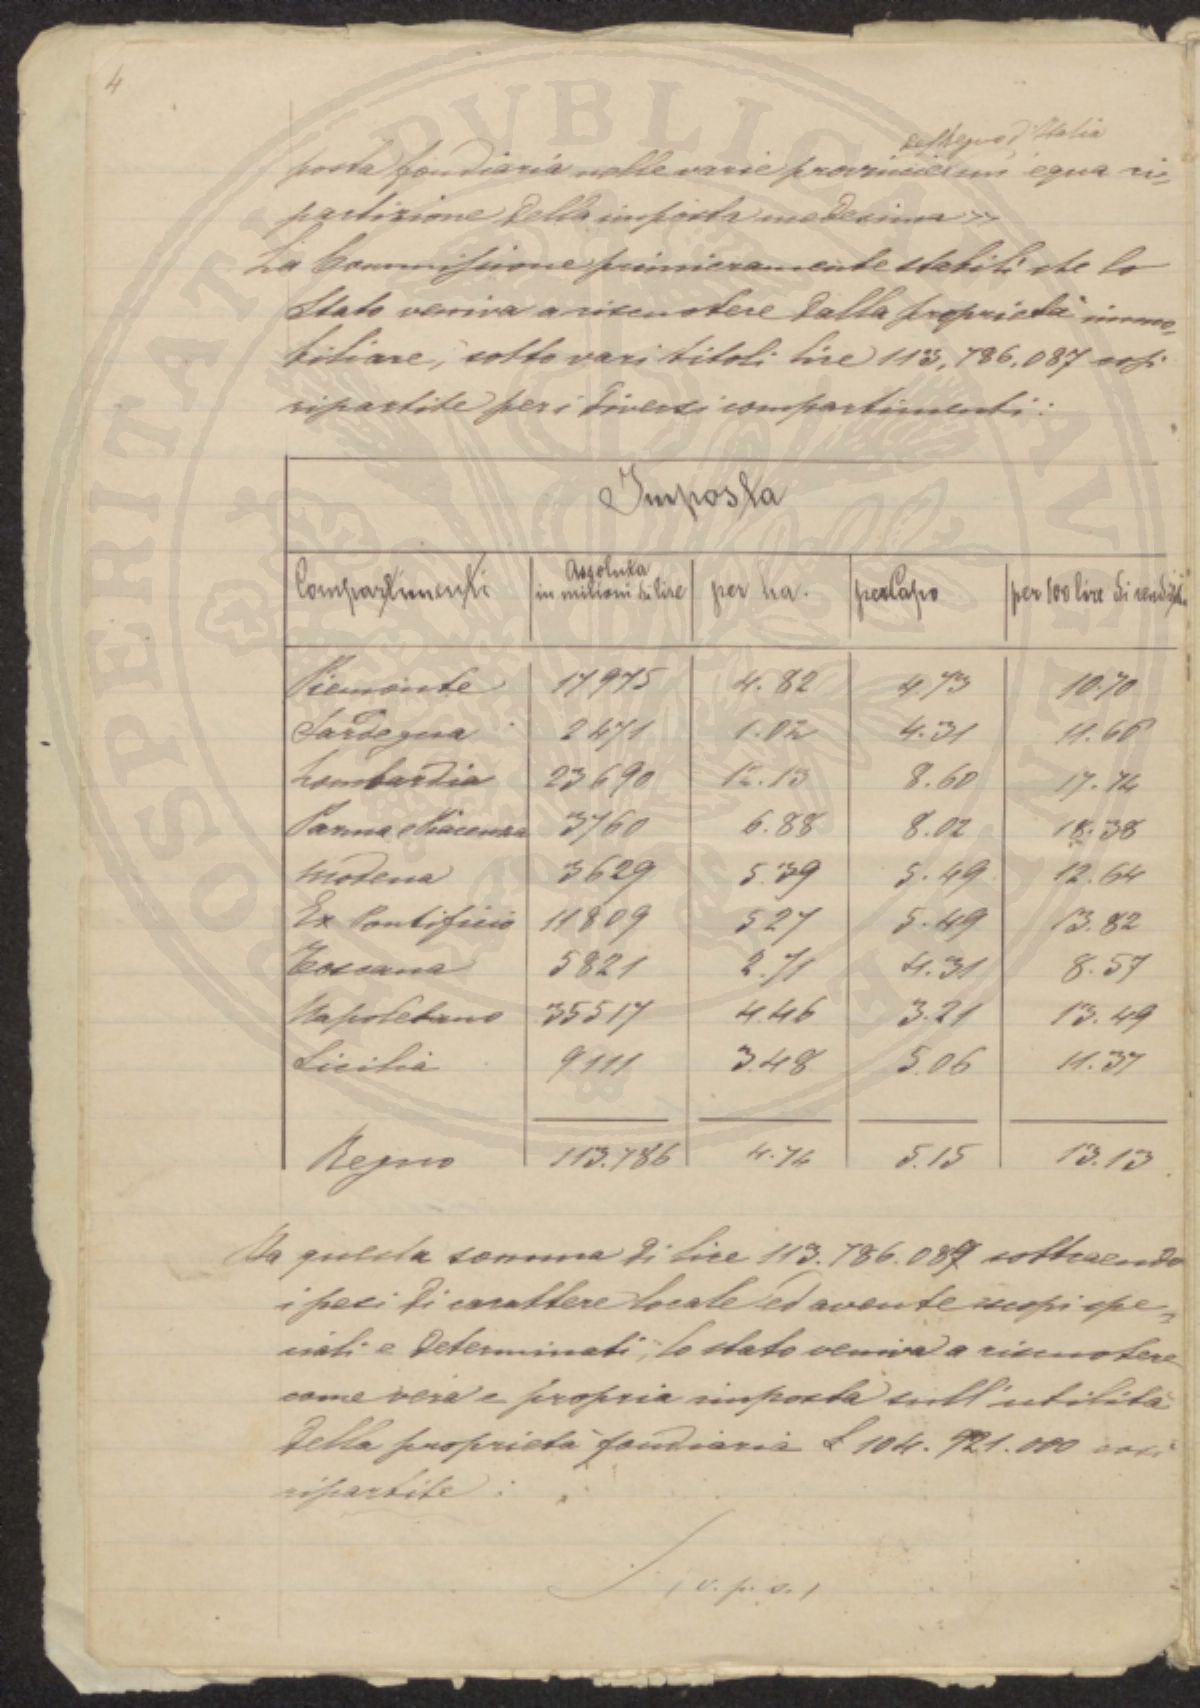 4
del Regno d'Italia
posta fondiaria nelle varie provincie un' equa ri-
partizione della imposta medesima »
La Commissione primieramente stabilì che lo
Stato veniva a riscuotere dalla proprietà immo-
biliare, sotto vari titoli lire 113,786.087 così
ripartite per i diversi compartimenti:
Imposta
Compartimenti | Assoluta in milioni di lire | per ha. | per Capo | per 100 lire di rendita
Piemonte 17975 4.82 4.73 10.70
Sardegna 2471 1.02 4.31 11.66
Lombardia 23690 12.13 8.60 17.74
Parma e Piacenza 3760 6.88 8.02 18.38
Modena 3629 5.39 5.49 12.64
Ex Pontificio 11809 527 5.49 13.82
Toscana 5821 2.71 4.31 8.57
Napoletano 35517 4.46 3.21 13.49
Sicilia 9111 3.48 5.06 11.37
Regno 113.786 4.74 5.15 13.13
Da questa somma di lire 113.786.087 sottraendo
i pesi di carattere locale ed avente scopi spe-
ciali e determinati, lo stato veniva a riscuotere
come vera e propria imposta sull'utilità
della proprietà fondiaria L 104.921.000 così
ripartite:
(v. p. s.)
PROSPERITATI PVBLICAE AVGENDAE